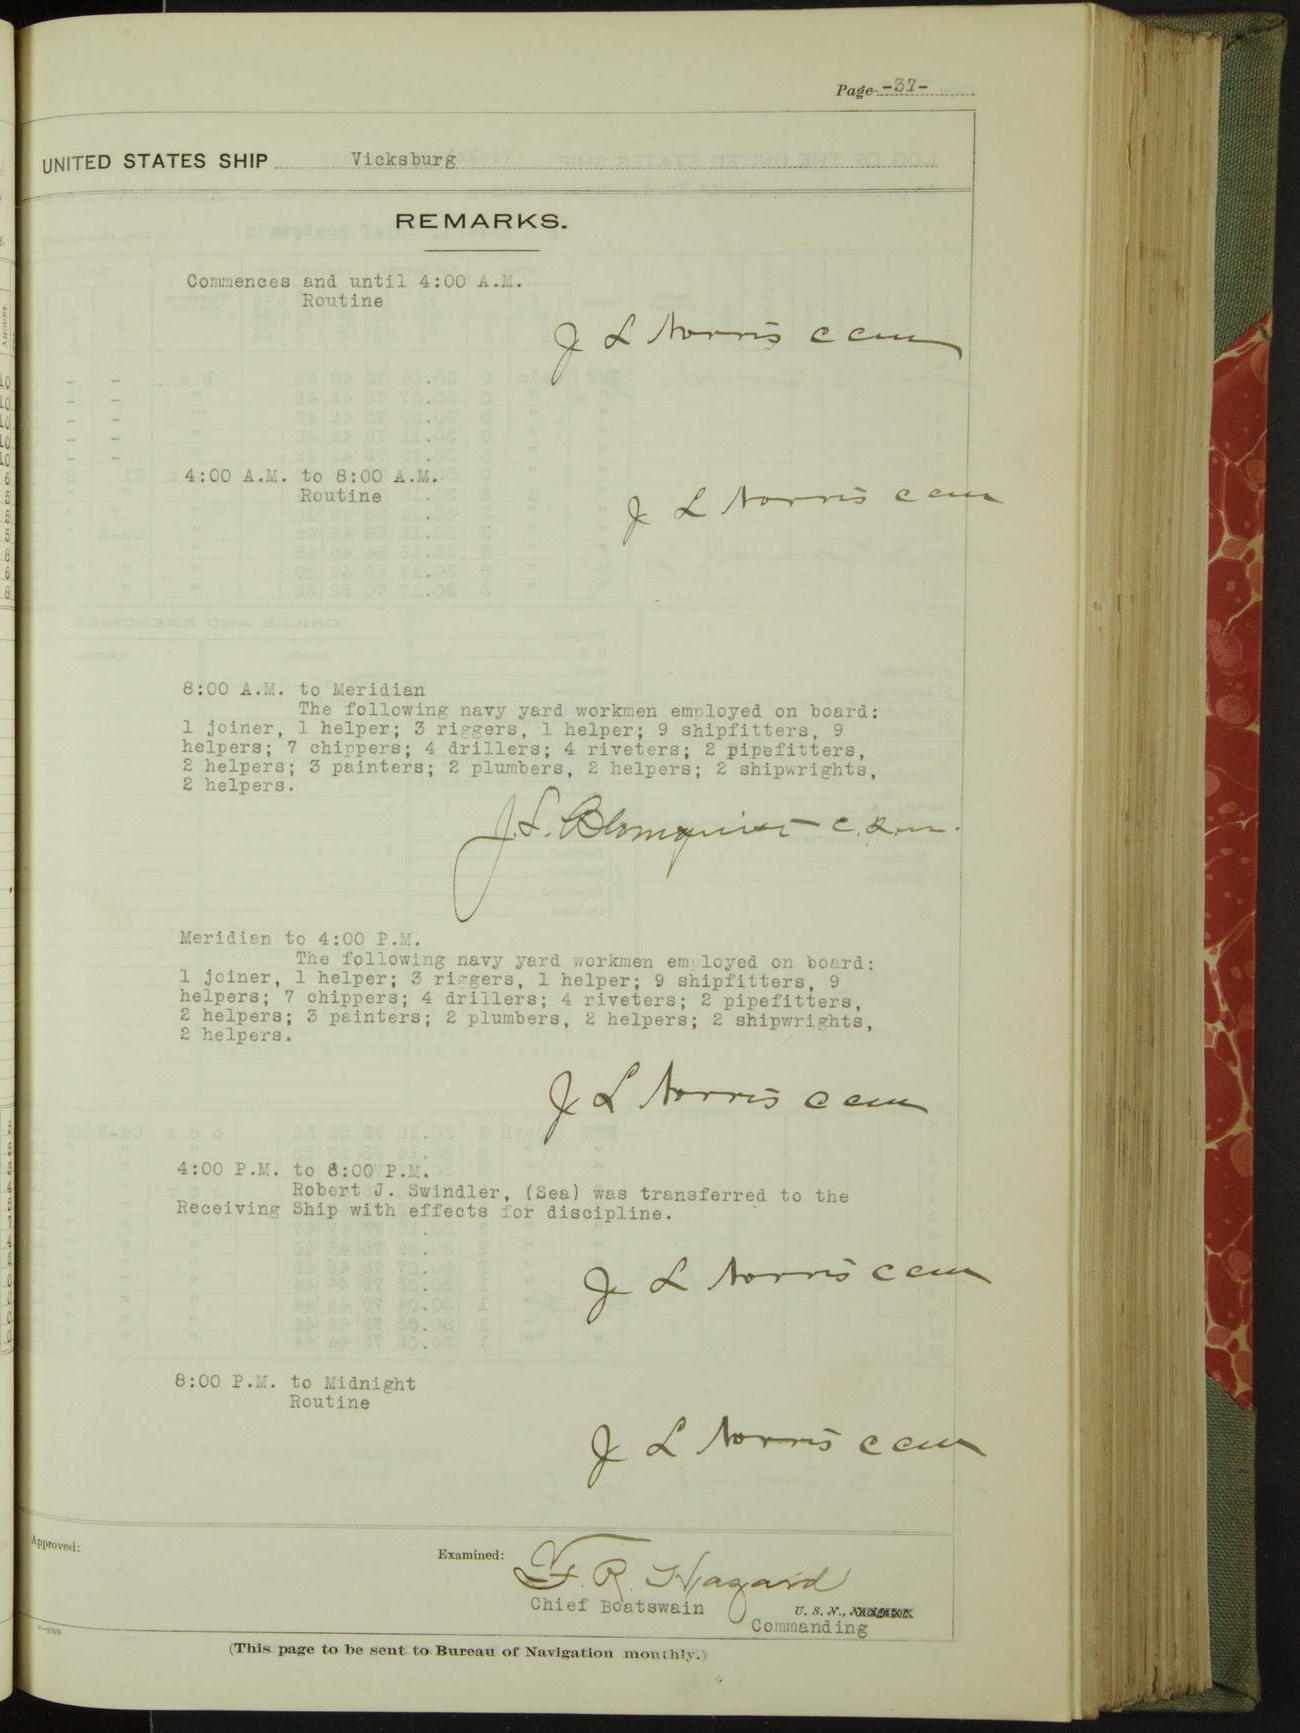 Page -37-
UNITED STATES SHIP Vicksburg
REMARKS.
Commences and until 4:00 A.M.
Routine
J L Norris CCM
4:00 A.M. to 8:00 A.M.
Routine
J L Norris CCM
8:00 A.M. to Meridian
The following navy yard workmen employed on board:
1 joiner, 1 helper; 3 riggers, 1 helper; 9 shipfitters, 9
helpers; 7 chippers; 4 drillers; 4 riveters; 2 pipefitters,
2 helpers; 3 painters; 2 plumbers, 2 helpers; 2 shipwrights,
2 helpers.
J. L. Blomquist
Meridian to 4:00 P.M.
The following navy yard workmen employed on board:
1 joiner, 1 helper; 3 riggers, 1 helper; 9 shipfitters, 9
helpers; 7 chippers; 4 drillers; 4 riveters; 2 pipefitters,
2 helpers; 3 painters; 2 plumbers, 2 helpers; 2 shipwrights,
2 helpers.
J L Norris CCM
4:00 P.M. to 8:00 P.M.
Robert J. Swindler, (Sea) was transferred to the
Receiving Ship with effects for discipline.
J L Norris CCM
8:00 P.M. to Midnight
Routine
J L Norris CCM
Approved:
Examined: F. R. Hazard
Chief Boatswain U. S. N.,
Commanding
(This page to be sent to Bureau of Navigation monthly.)